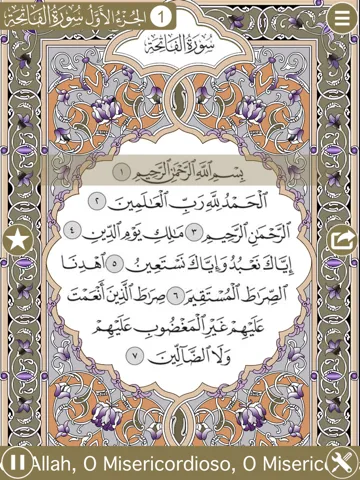 الجزء الأول سورة الفاتحة
1
سُورَةُ الفَاتِحَةِ
بِسْمِ ٱللَّهِ ٱلرَّحْمَٰنِ ٱلرَّحِيمِ ١
ٱلْحَمْدُ لِلَّهِ رَبِّ ٱلْعَٰلَمِينَ ٢
ٱلرَّحْمَٰنِ ٱلرَّحِيمِ ٣ مَٰلِكِ يَوْمِ ٱلدِّينِ ٤
إِيَّاكَ نَعْبُدُ وَإِيَّاكَ نَسْتَعِينُ ٥ ٱهْدِنَا
ٱلصِّرَٰطَ ٱلْمُسْتَقِيمَ ٦ صِرَٰطَ ٱلَّذِينَ أَنْعَمْتَ
عَلَيْهِمْ غَيْرِ ٱلْمَغْضُوبِ عَلَيْهِمْ
وَلَا ٱلضَّآلِّينَ ٧
Allah, O Misericordioso, O Miseric